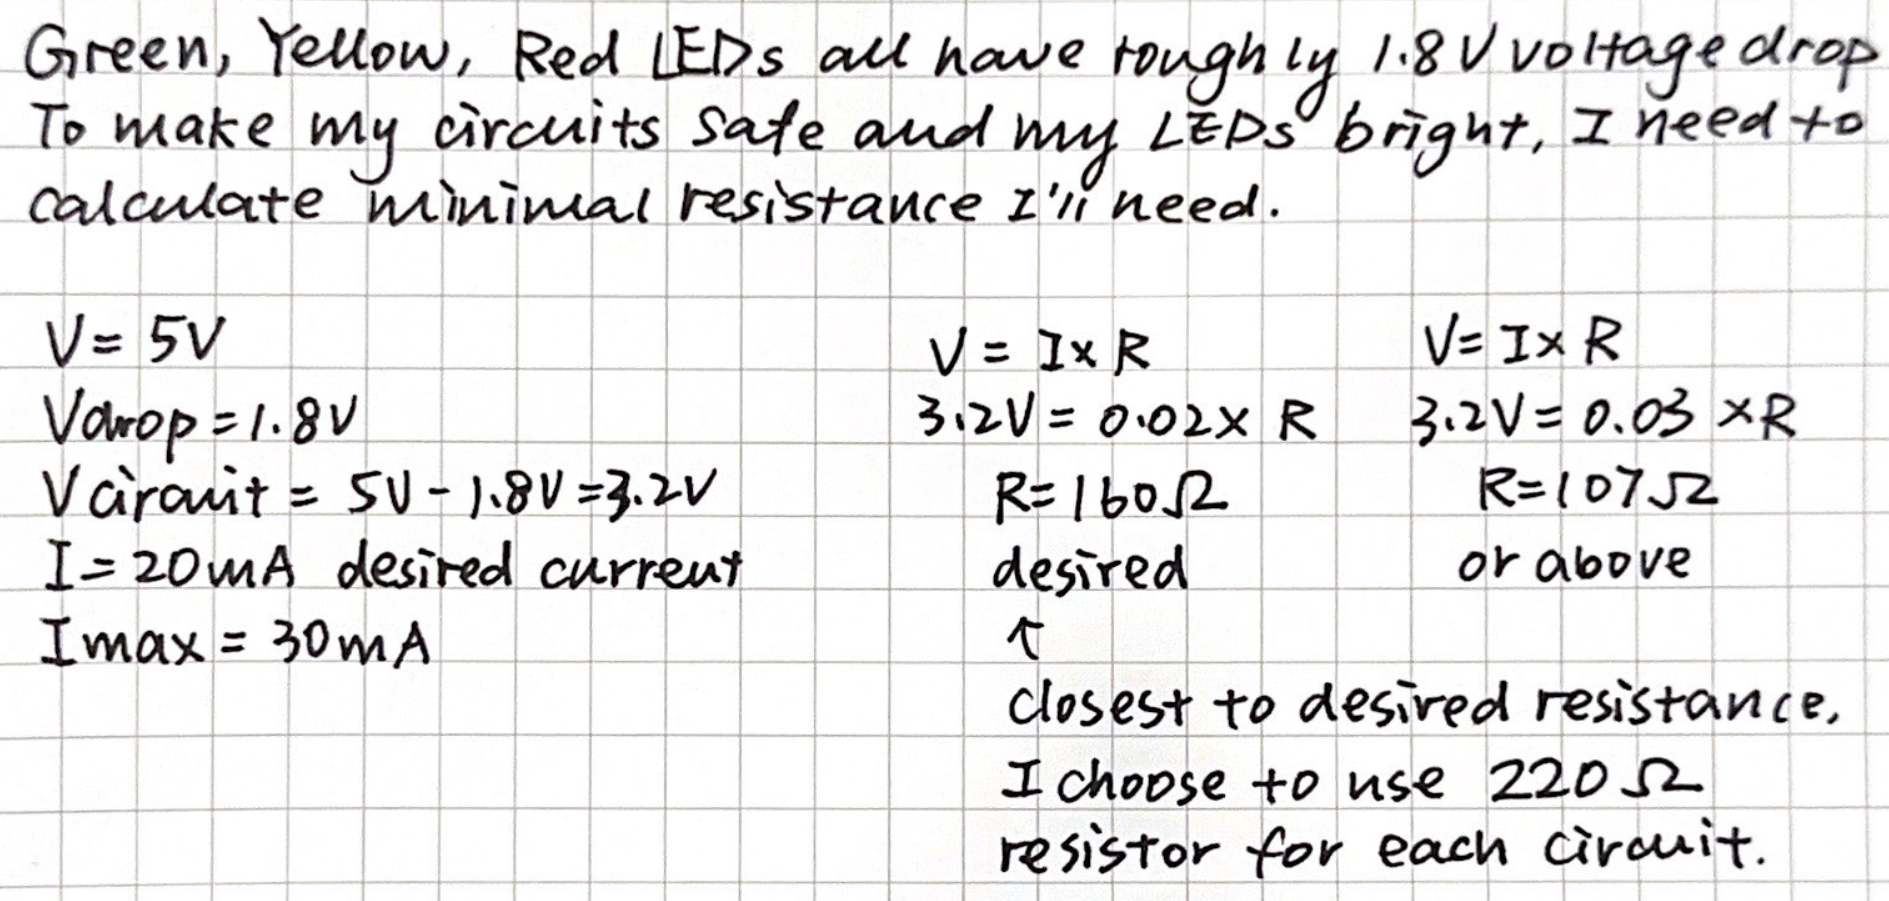 Green, Yellow, Red LEDs all have roughly 1.8V voltage drop
To make my circuits safe and my LEDs bright, I need to
calculate minimal resistance I'll need.
V = 5V
Vdrop = 1.8V
Vcircuit = 5V - 1.8V = 3.2V
I = 20mA desired current
Imax = 30mA
V = I x R
3.2V = 0.02 x R
R = 160Ω
desired
↑
closest to desired resistance,
I choose to use 220Ω
resistor for each circuit.
V = I x R
3.2V = 0.03 x R
R = 107Ω
or above